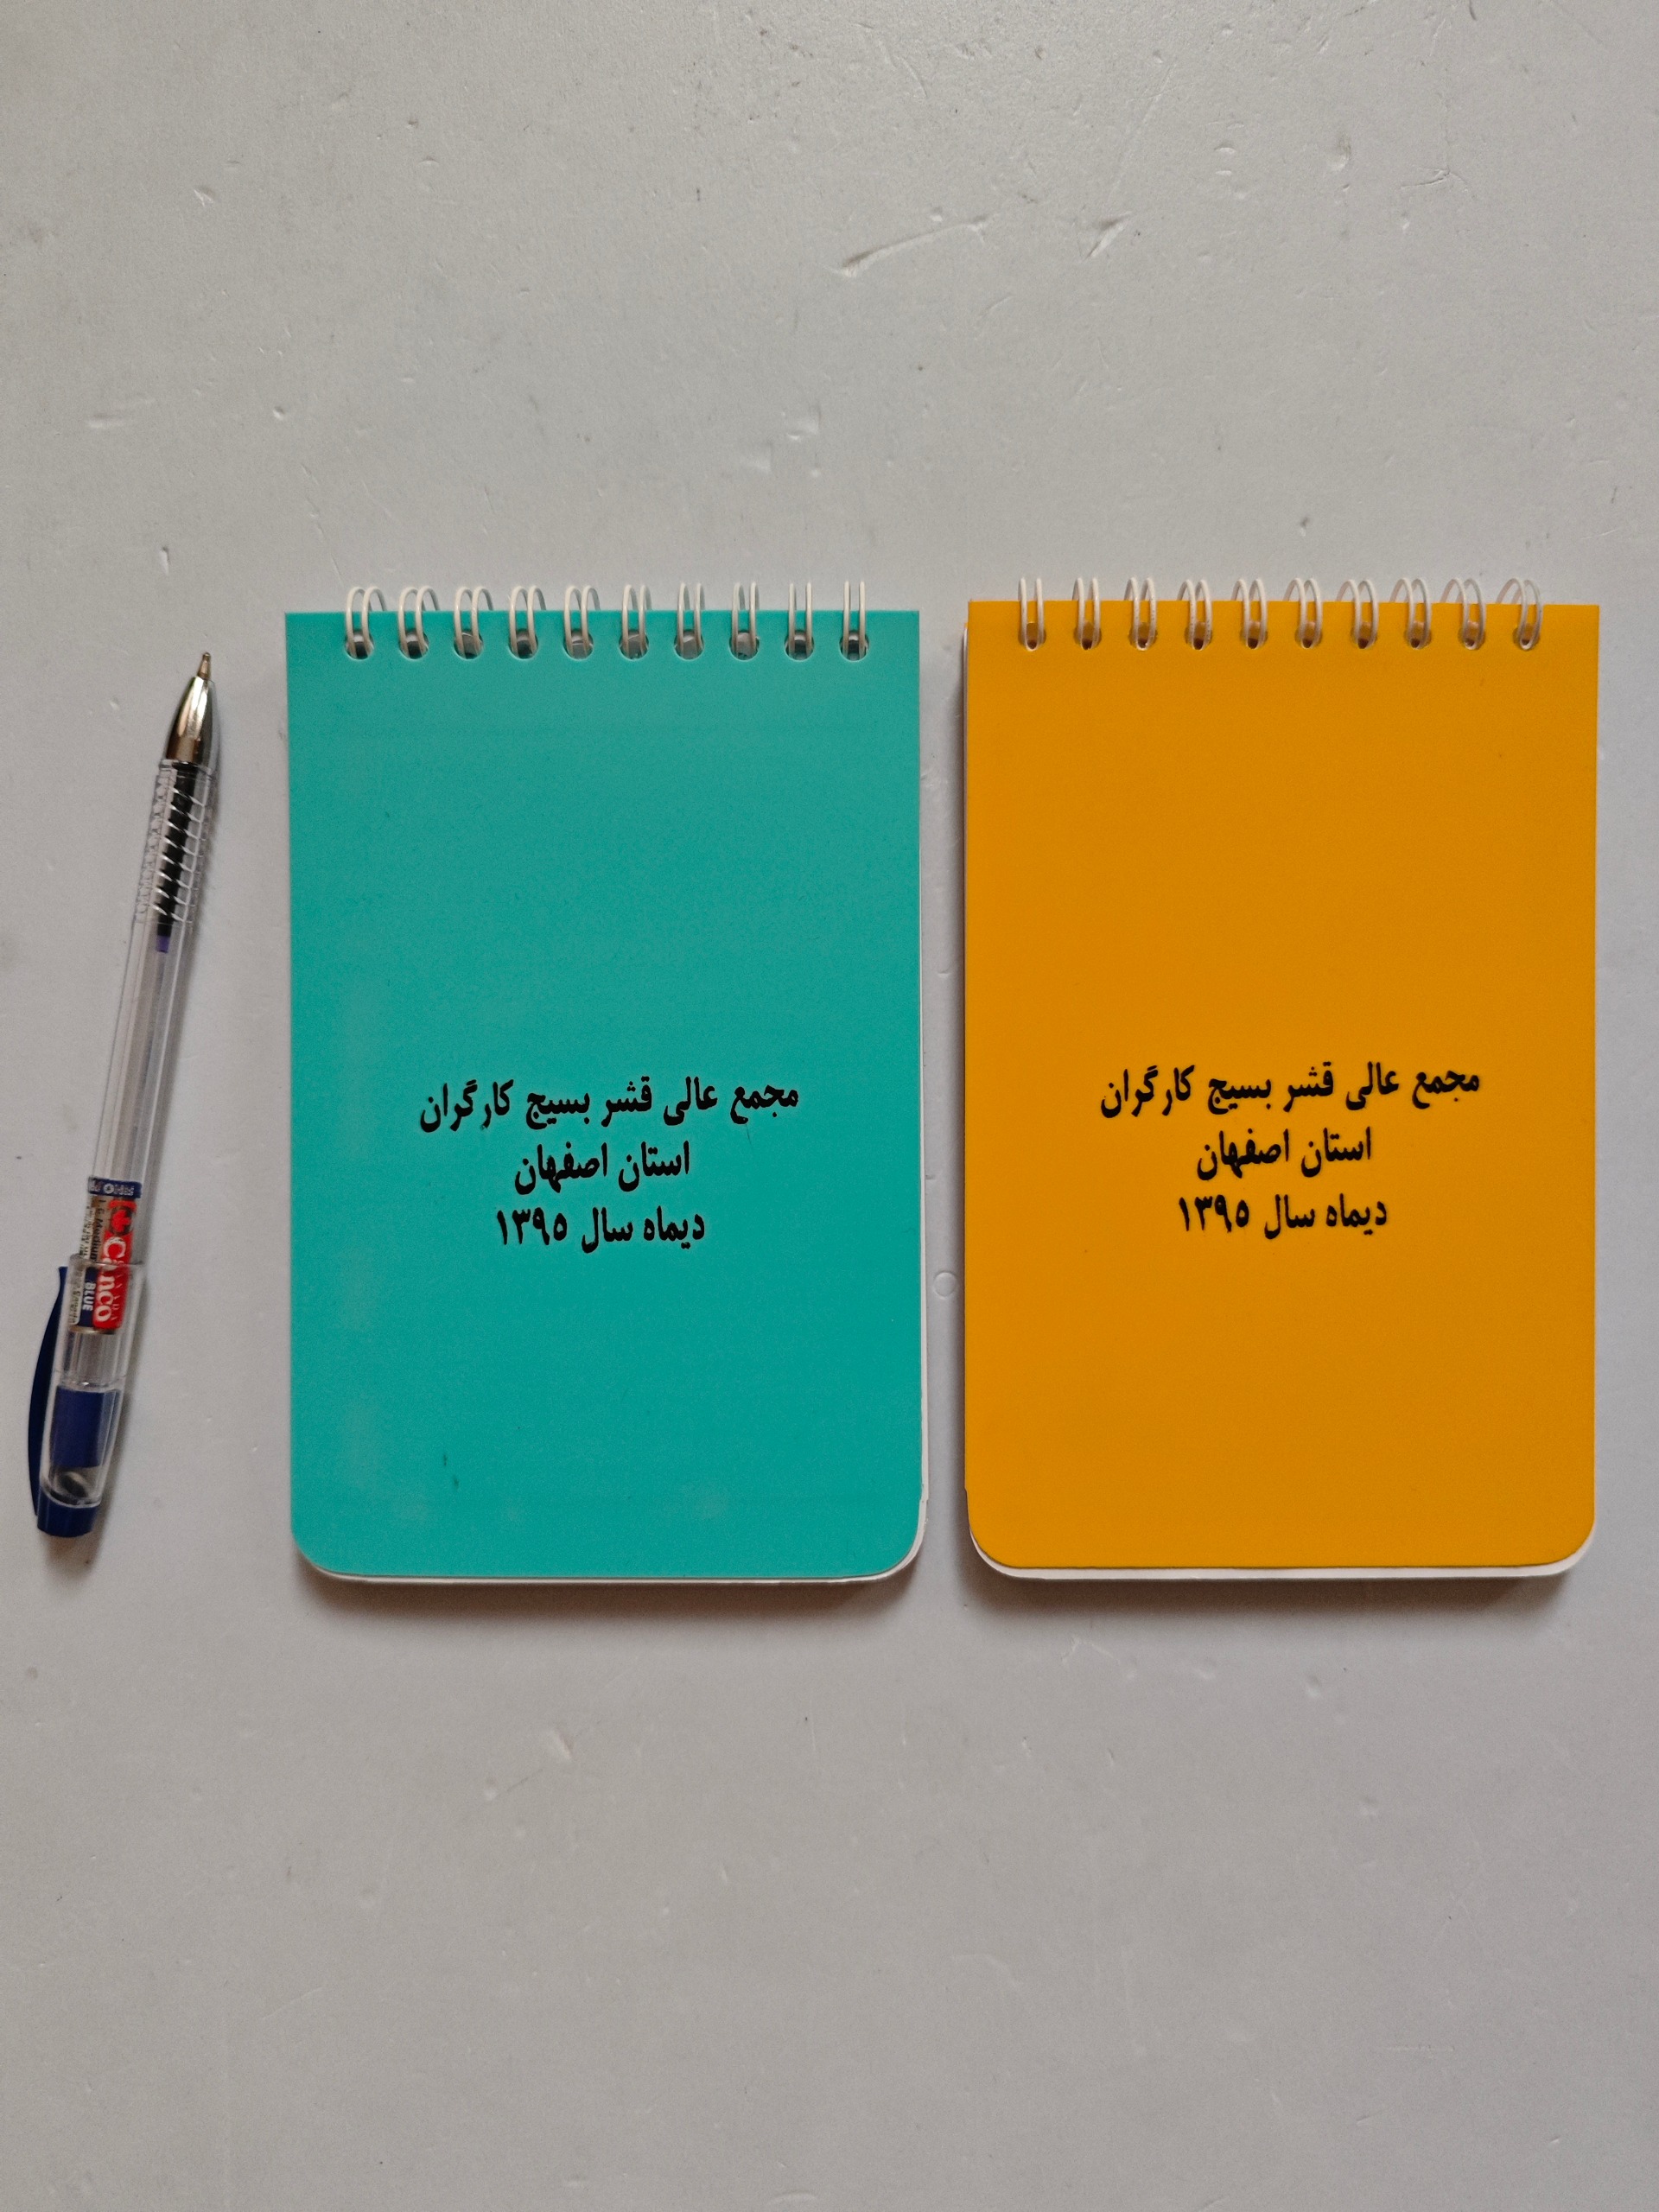 مجمع عالی قشر بسیج کارگران
استان اصفهان
دیماه سال ۱۳۹۵
مجمع عالی قشر بسیج کارگران
استان اصفهان
دیماه سال ۱۳۹۵
Canco
BLUE